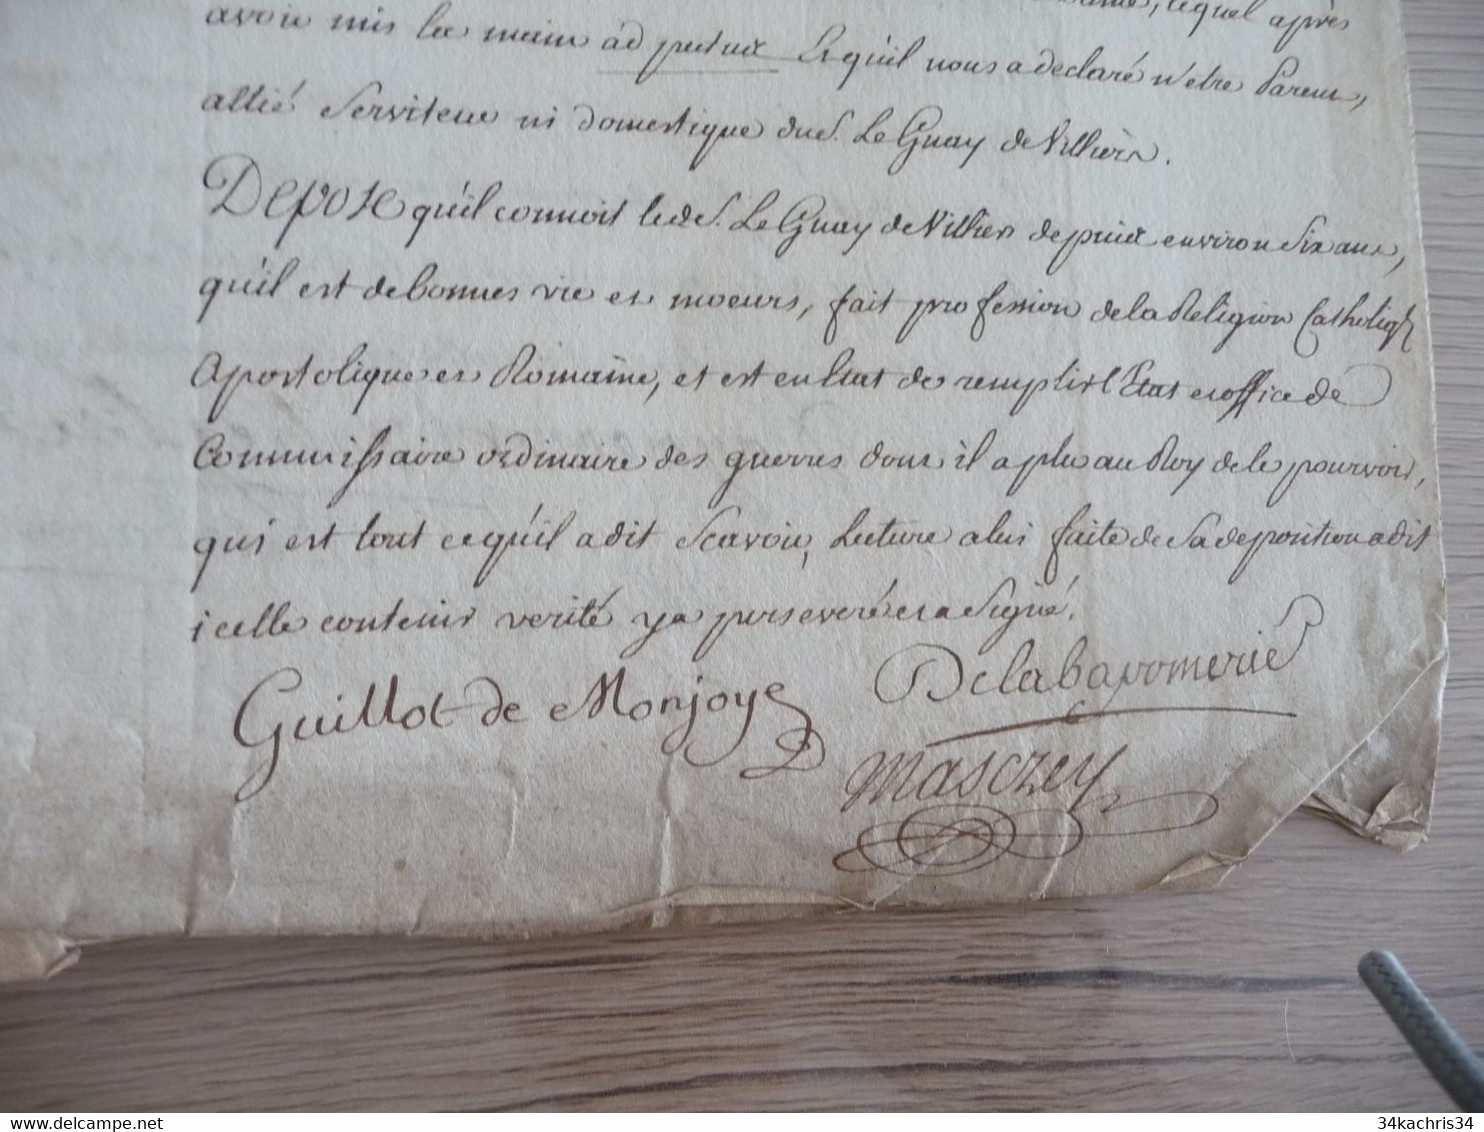 lequel après
avoir mis la main ad pectus Et qu'il nous a declaré n'etre Parent,
allié Serviteur ni domestique du S. Le Guay de Villiers.
Depose qu'il connoit led. S. Le Guay de Villiers depuis environ Six ans,
qu'il est de bonnes vie et moeurs, fait profession de la Religion Catholiq
Apostolique et Romaine, et est en Etat de remplir l'Etat et office de
Commissaire ordinaire des guerres dont il a plu au Roy de le pourvoir,
qui est tout ce qu'il a dit Scavoir, Lecture a lui faite de Sa deposition a dit
icelle contenir verité y a perseveré et a Signé.
Guillot de Monjoye Delabapomerie
Mascrey
34kachris34
delcampe.net